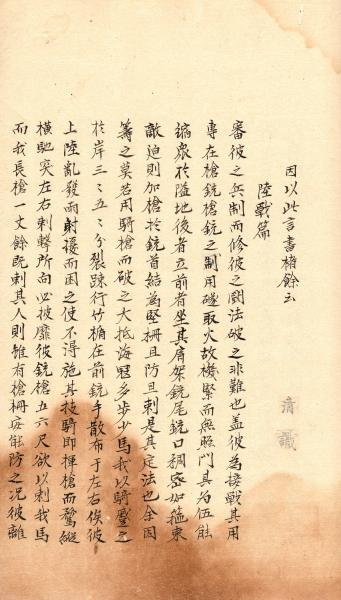 因以此言書楮餘云
清議
陸戰篇
審彼之兵制而修彼之鬪法破之非難也蓋彼為接戰其用
專在槍銃槍銃之制用燧取火故機緊而無照門其為伍能
縮衆於隘地後者立前者坐其肩架銃尾銃口稠密如箍束
敵迫則加槍於銃首結為堅柵且防且刺是其定法也余因
籌之莫若用騎槍而破之大抵海寇多步少馬我以騎壓之
於岸三三五五分裂踈行竹楯在前銃手散布于左右俟彼
上陸亂發雨射擾而困之使不得施其技騎即揮槍而騖縱
橫馳突左右刺擊所向必披靡彼銃槍五六尺欲以刺我馬
而我長槍一丈餘既刺其人則雖有槍柵安能防之況彼離